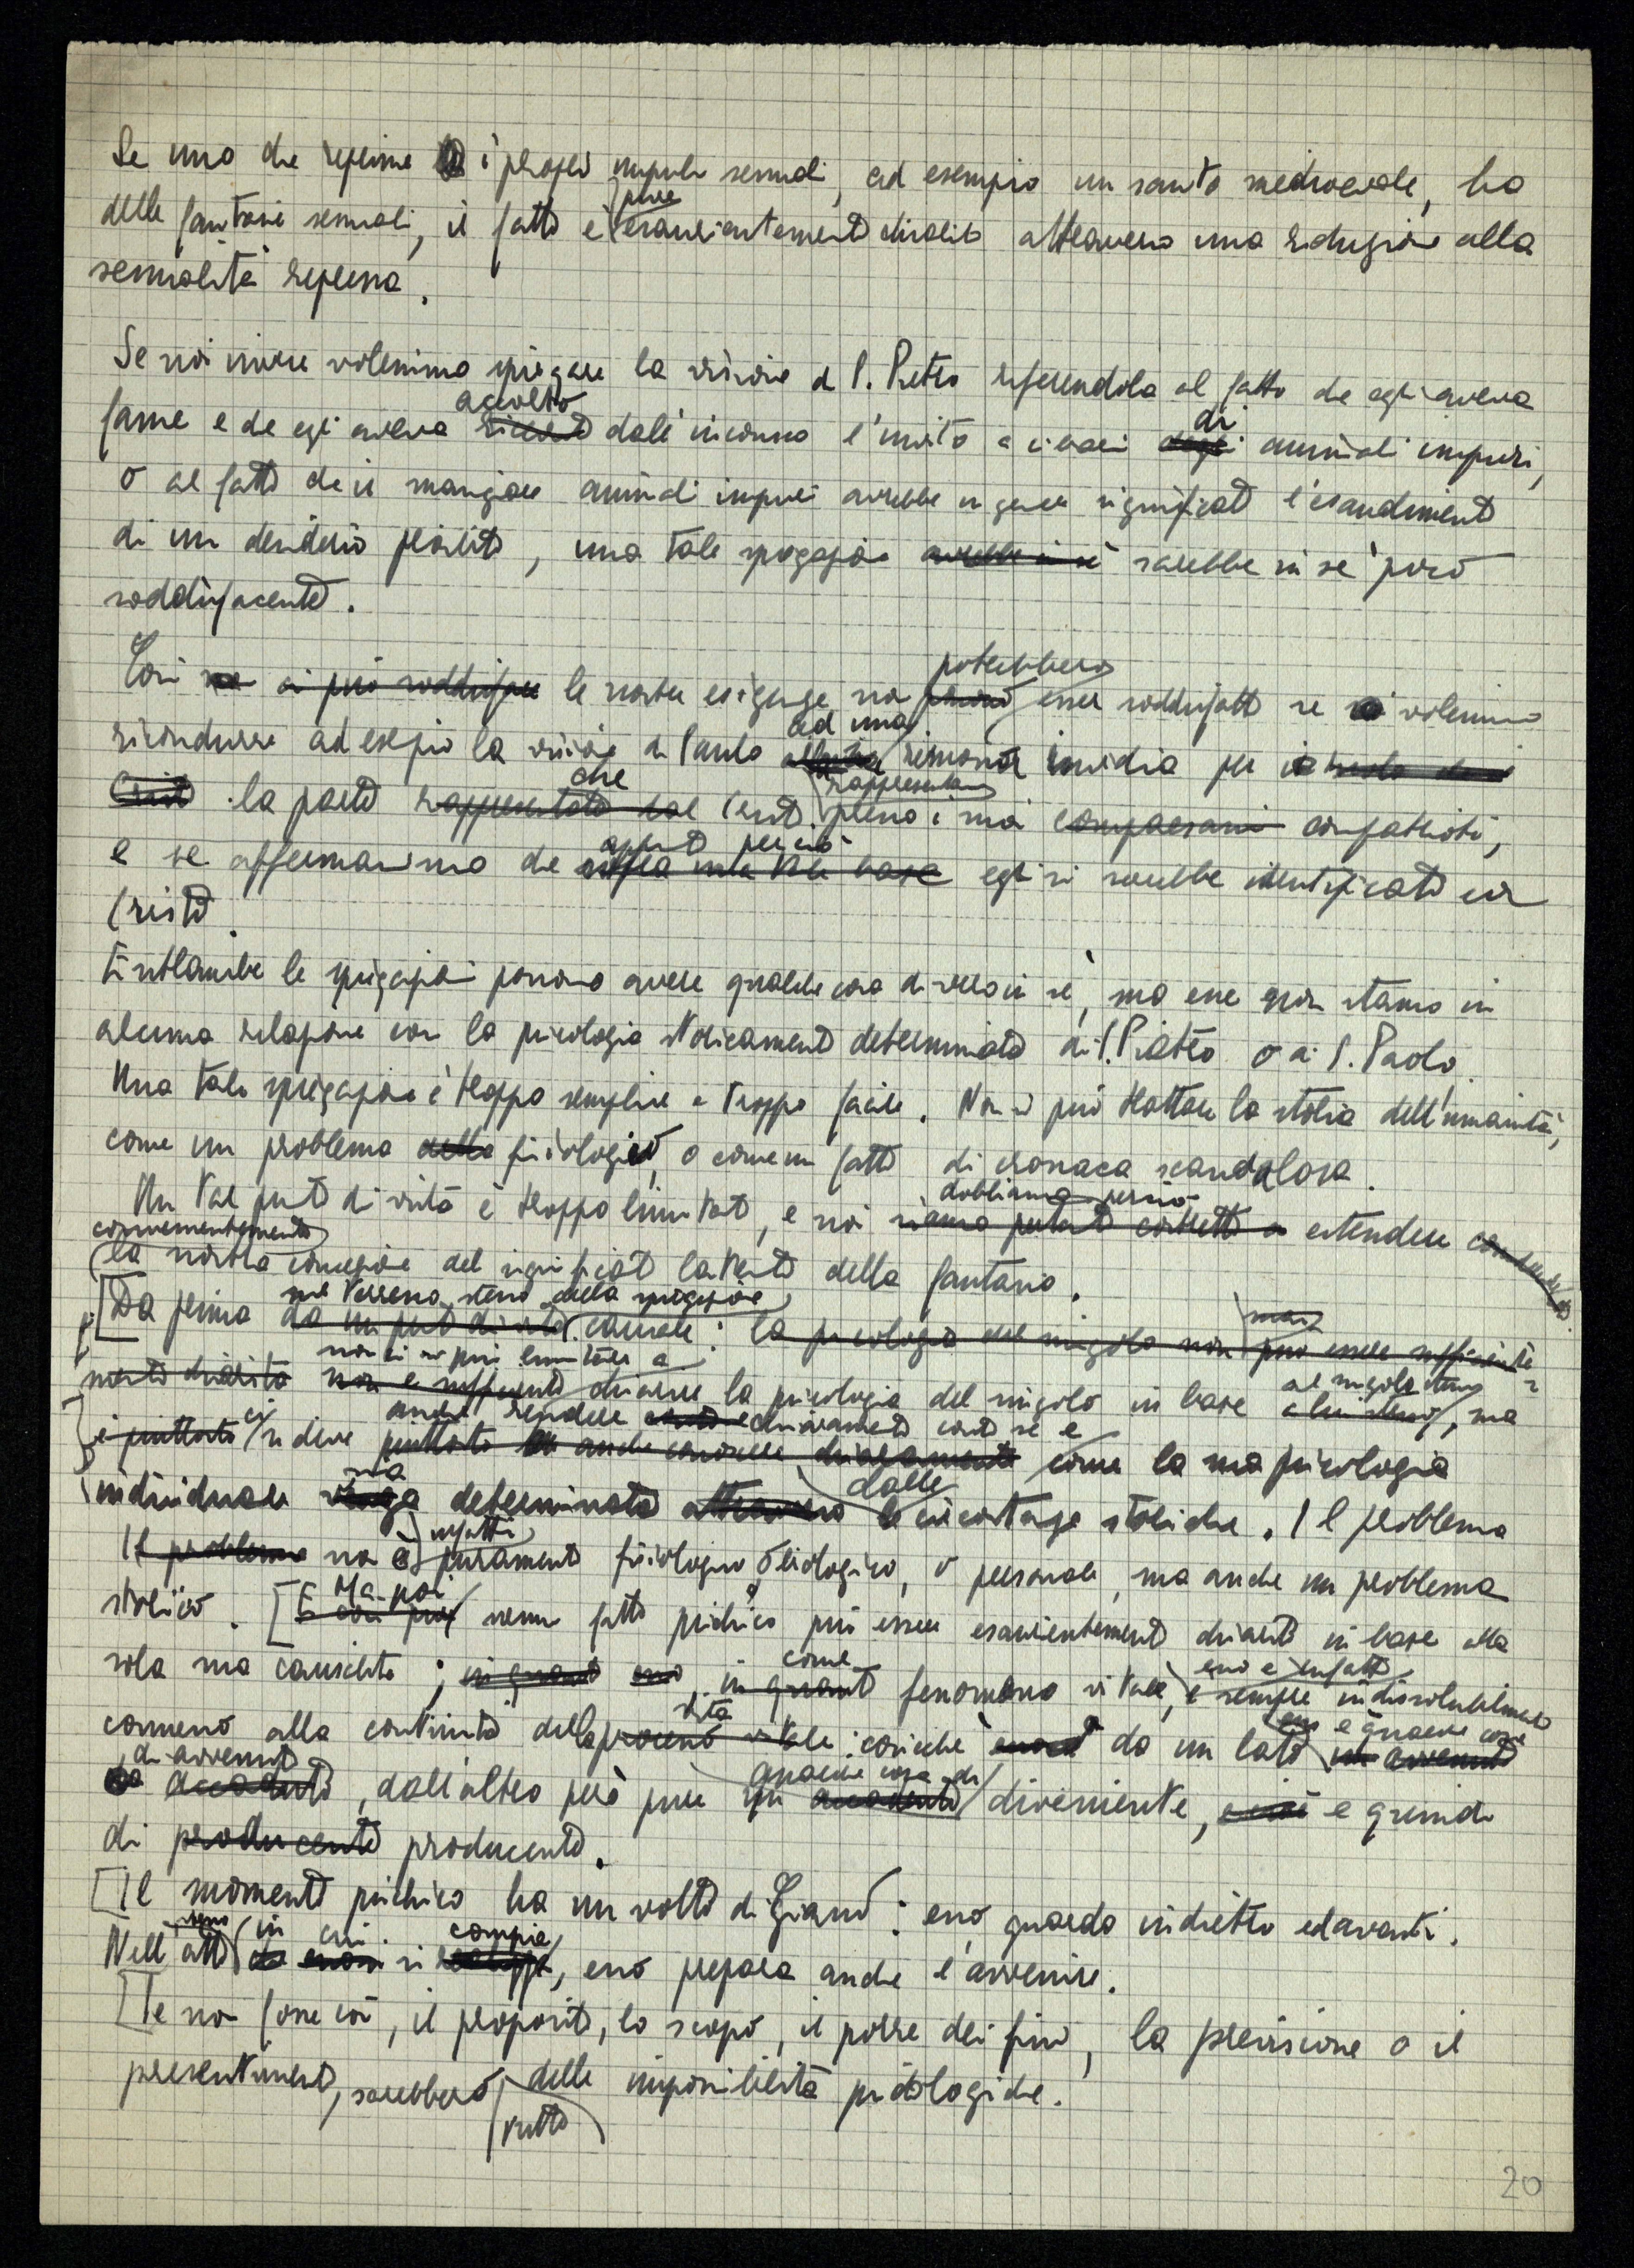 Se uno che reprime i propri impulsi sessuali, ad esempio un santo medioevale, ha
delle fantasie sessuali, il fatto è pure esaurientemente chiarito attraverso una riduzione alla
sessualità repressa.
Se noi invece volessimo spiegare la visione di S. Pietro riferendola al fatto che egli aveva
fame e che egli aveva accolto dall'inconscio l'invito a cibarsi di animali impuri,
o al fatto che il mangiare animali impuri avrebbe in genere significato l'esaudimento
di un desiderio proibito, una tale spiegazione avrebbe in sè sarebbe in sè poco
soddisfacente.
Così si può soddisfare le nostre esigenze non potrebbero esser soddisfatte se volessimo
ricondurre ad esempio la visione di Paolo ad una rimossa invidia per
Cristo la parte che rappresentata dal Cristo rappresentava presso i suoi compaesani compatrioti,
e se affermassimo che appunto perciò egli si sarebbe identificato con
Cristo.
Entrambe le spiegazioni possono avere qualche cosa di vero in sè, ma esse non stanno in
alcuna relazione con la psicologia storicamente determinata di S. Pietro o di S. Paolo.
Una tale spiegazione è troppo semplice e troppo facile. Non si può trattare la storia dell'umanità,
come un problema della fisiologico, o come un fatto di cronaca scandalosa.
Un tal punto di vista è troppo limitato, e noi dobbiamo perciò siamo pertanto costretti a estendere
convenientemente
la nostra concezione del significato latente della fantasia.
[Da prima sul terreno stesso della spiegazione da un punto di vista causale: la psicologia del singolo non può mai essere sufficiente
mente chiarita non ci si può limitare a non è sufficiente chiarire la psicologia del singolo in base al singolo stesso a lui stesso, ma
è piuttosto ci si deve anche rendere chiaramente conto se e piuttosto anche conoscere chiaramente come la sua psicologia
individuale sia venga determinata attraverso dalle le circostanze storiche. Il problema
Il problema non è infatti puramente fisiologico, biologico, o personale, ma anche un problema
storico. [Ma poi E così pure nessun fatto psichico può essere esaurientemente chiarito in base alla
sola sua causalità; in quanto esso, in quanto come fenomeno vitale, esso è infatti è sempre indissolubilmente
connesso alla continuità della vita processo vitale: cosicchè da un lato esso è qualche cosa un avvenuto
di avvenuto accaduto, dall'altro però pure un qualche cosa di accadente diveniente, e quindi
di producente producente.
[Il momento psichico ha un volto di Giano: esso guarda indietro ed avanti.
Nell'atto stesso in cui si compie, esso prepara anche l'avvenire.
[Se non fosse così, il proposito, lo scopo, il porre dei fini, la previsione o il
presentimento, sarebbero tutte delle impossibilità psicologiche.
20